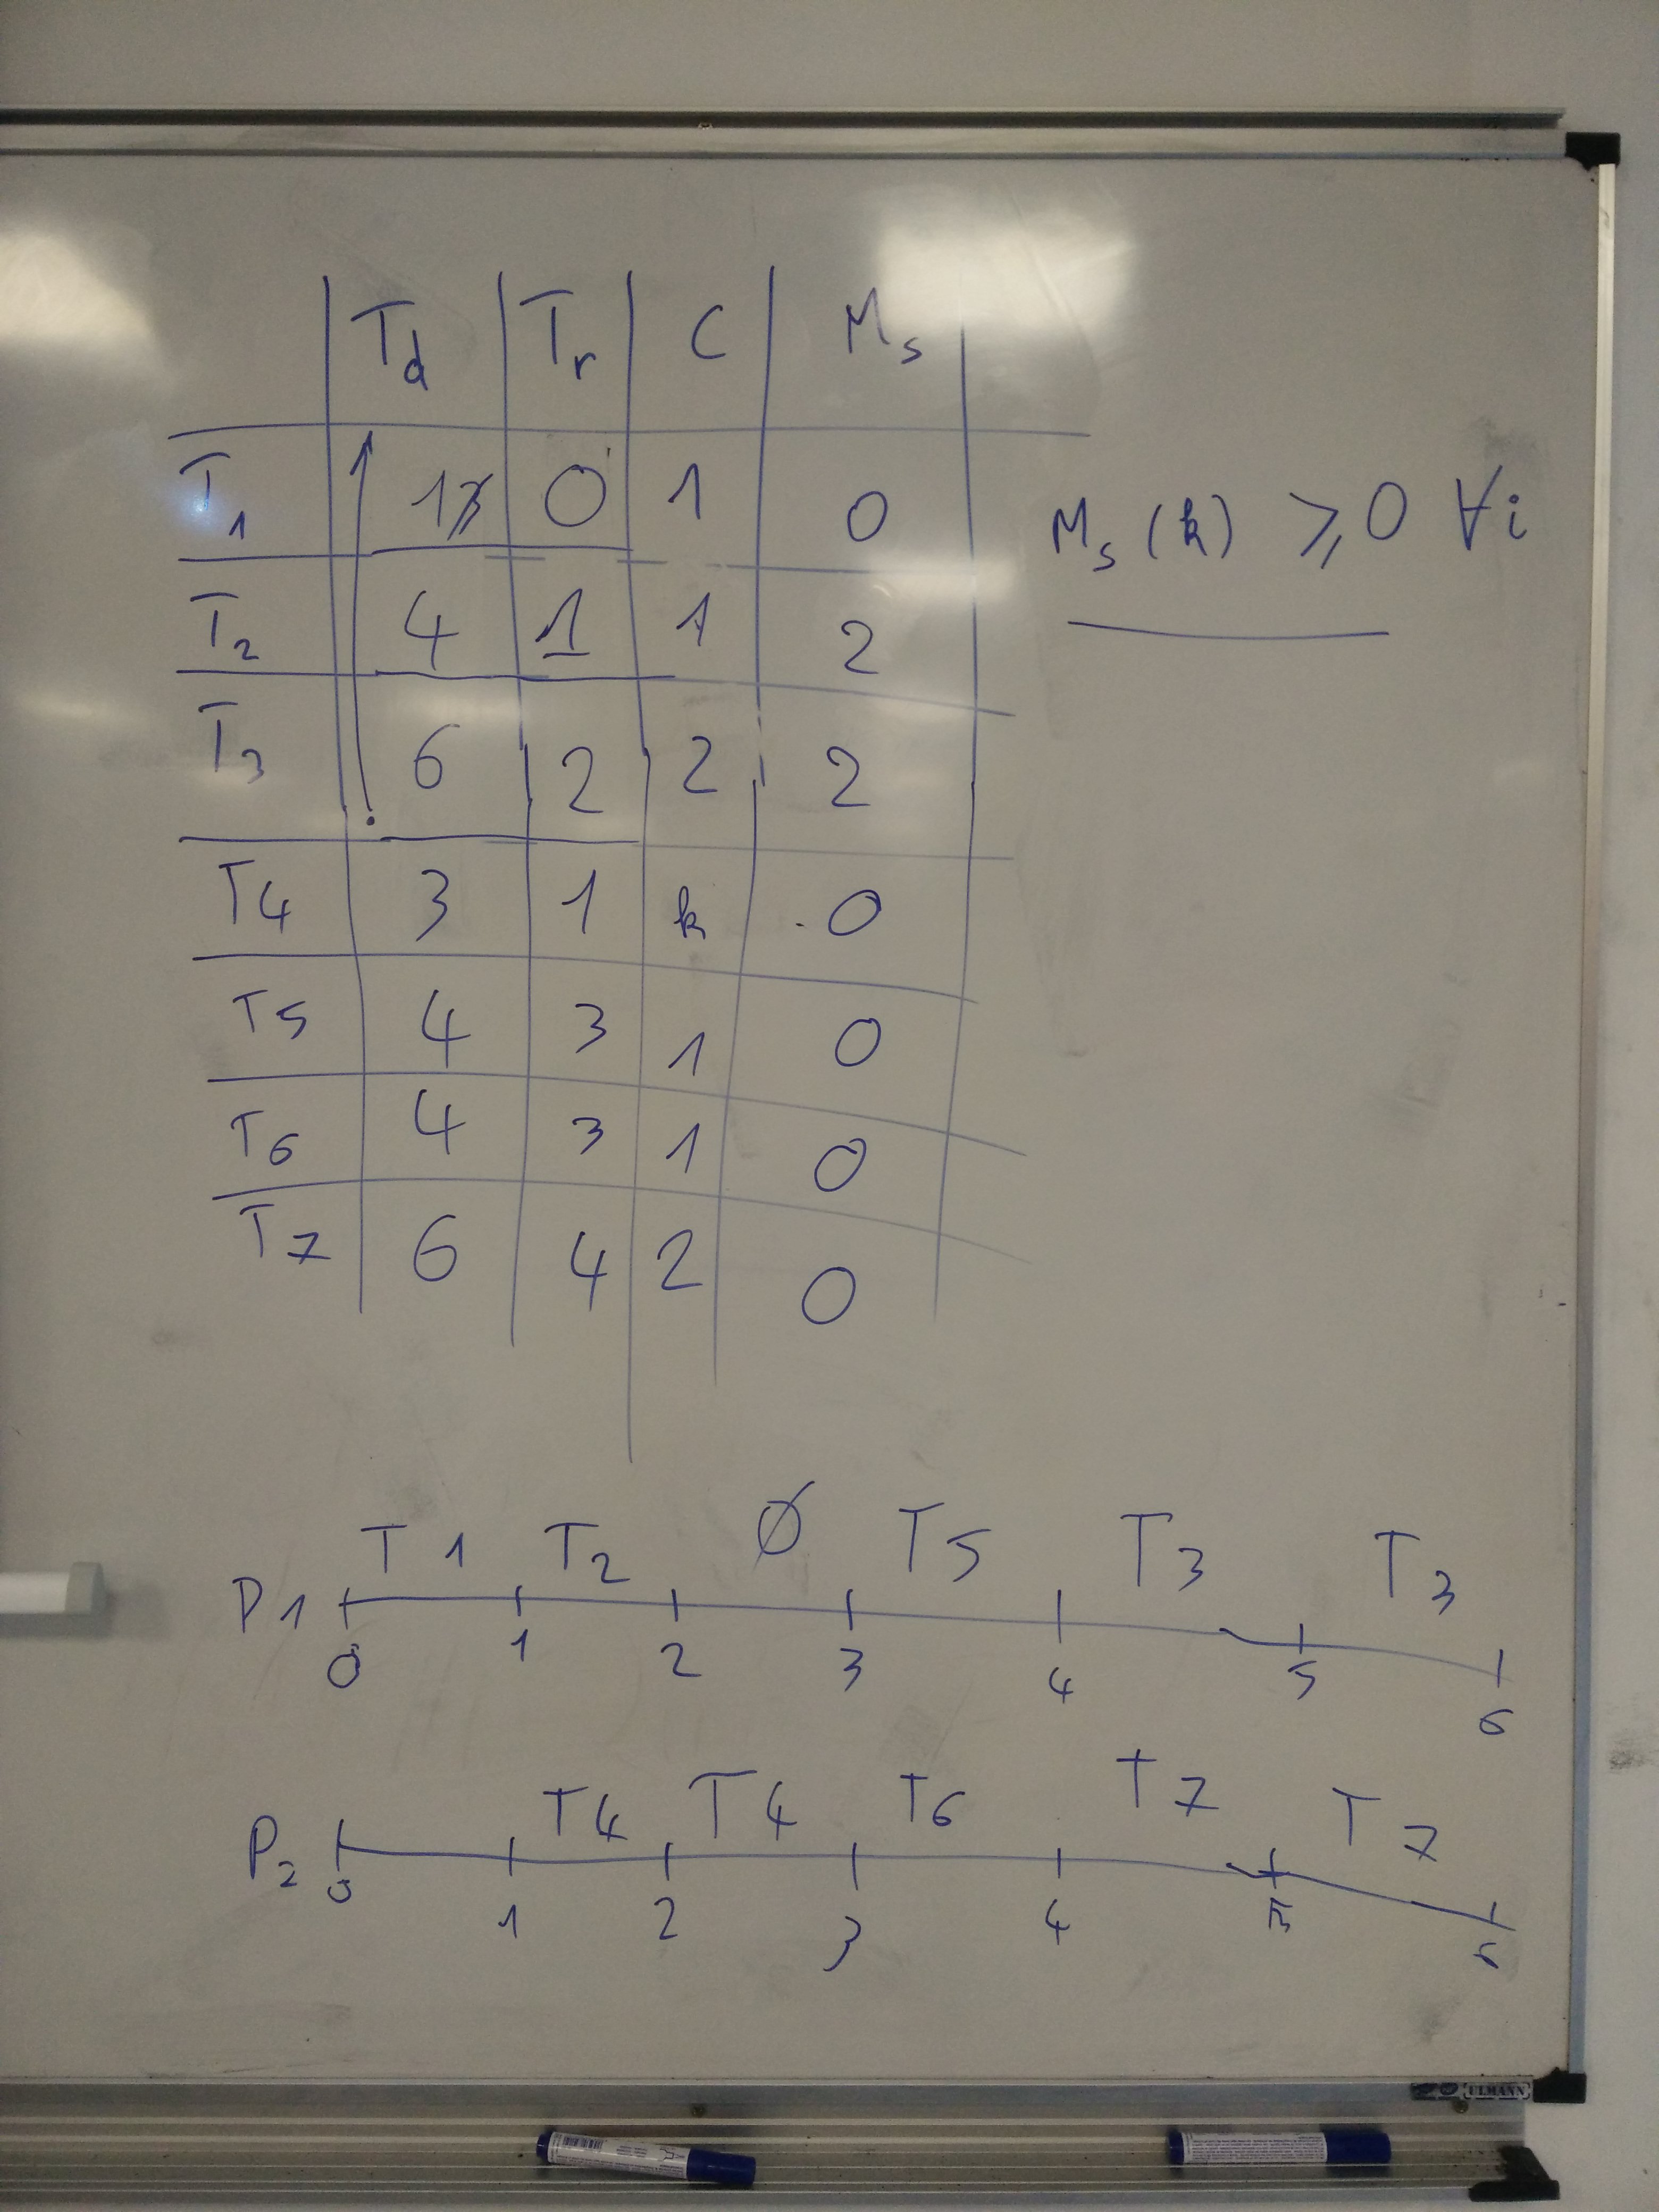 Td Tr C Ms
T1 1 0 1 0
Ms(k) ⩾ 0 ∀i
T2 4 1 1 2
T3 6 2 2 2
T4 3 1 k 0
T5 4 3 1 0
T6 4 3 1 0
T7 6 4 2 0
T1 T2 Ø T5 T3 T3
P1
0 1 2 3 4 5 6
T4 T4 T6 T7 T7
P2
0 1 2 3 4 5 6
ULMANN